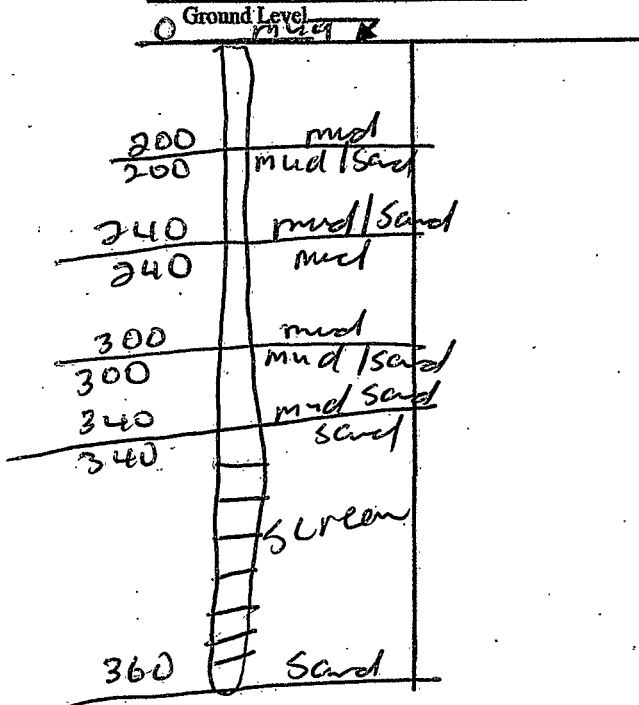 Ground Level
0 mud
200 mud
200 mud/Sand
240 mud/Sand
240 mud
300 mud
300 mud/sand
340 mud Sand
340 sand
screen
360 Sand